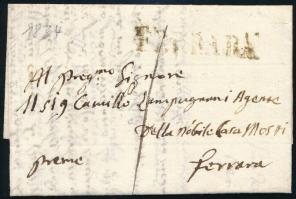 1824
FERRARA
Al Pregmo Signore
Il Sig Camillo Zampagnani Agente
Della Nobile Casa Mosti
preme
Ferrara